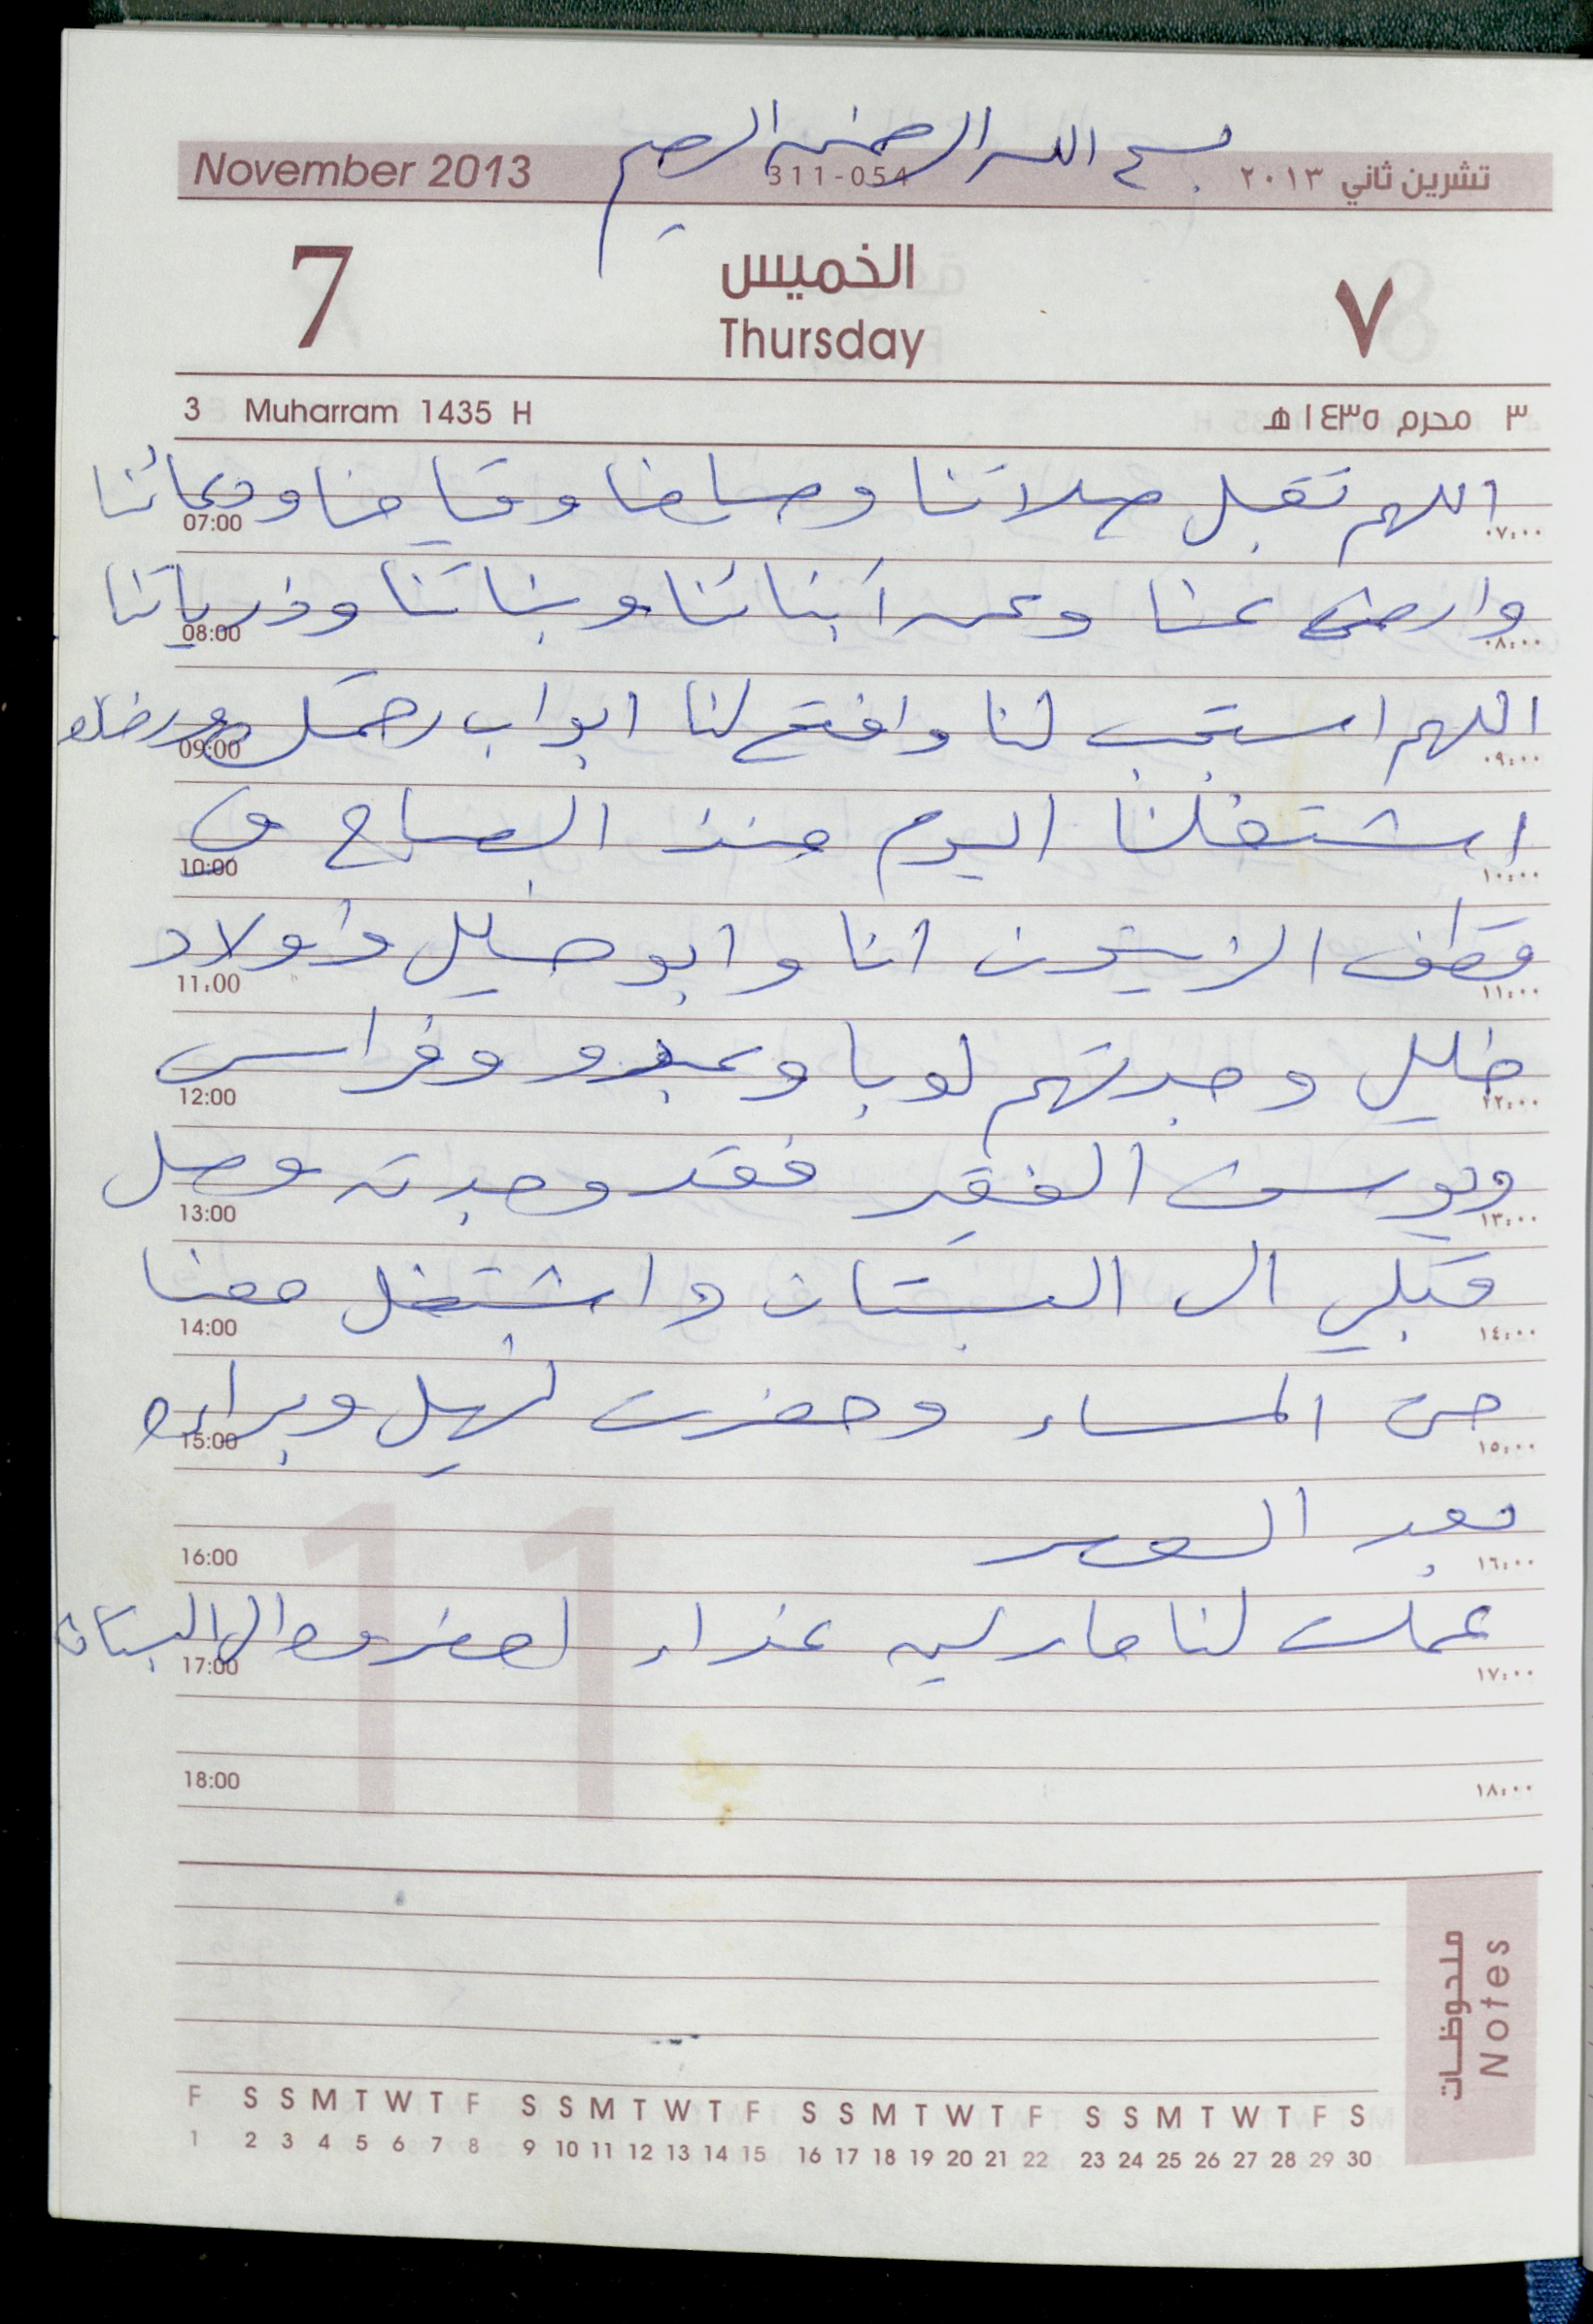 بسم الله الرحمن الرحيم
November 2013 311-054 تشرين ثاني ٢٠١٣
7 الخميس ٧
Thursday
3 Muharram 1435 H ٣ محرم ١٤٣٥ هـ
اللهم تقبل صلاتنا وصيامنا وقيامنا ودعائنا
07:00 ٠٧:٠٠
وارضى عنا وعن أبنائنا وبناتنا وذرياتنا
08:00 ٠٨:٠٠
اللهم استجب لنا وافتح لنا ابواب رحمتك
09:00 ٠٩:٠٠
اشتغلنا اليوم منذ الصباح في
10:00 ١٠:٠٠
قطف الزيتون انا وابو خليل وأولاد
11:00 ١١:٠٠
خليل وجدتهم لوبا وعبدو وفراس
12:00 ١٢:٠٠
ويوسف الفقير فقد وجدته وصل
13:00 ١٣:٠٠
قبلي الى البستان واشتغل معنا
14:00 ١٤:٠٠
حتى المساء وحضرت نهيل وبراءه
15:00 ١٥:٠٠
بعد العصر
16:00 ١٦:٠٠
عملت لنا ماريه غذاء احضروه الى البستان
17:00 ١٧:٠٠
18:00 ١٨:٠٠
ملحوظات
Notes
F S S M T W T F S S M T W T F S S M T W T F S S M T W T F S
1 2 3 4 5 6 7 8 9 10 11 12 13 14 15 16 17 18 19 20 21 22 23 24 25 26 27 28 29 30